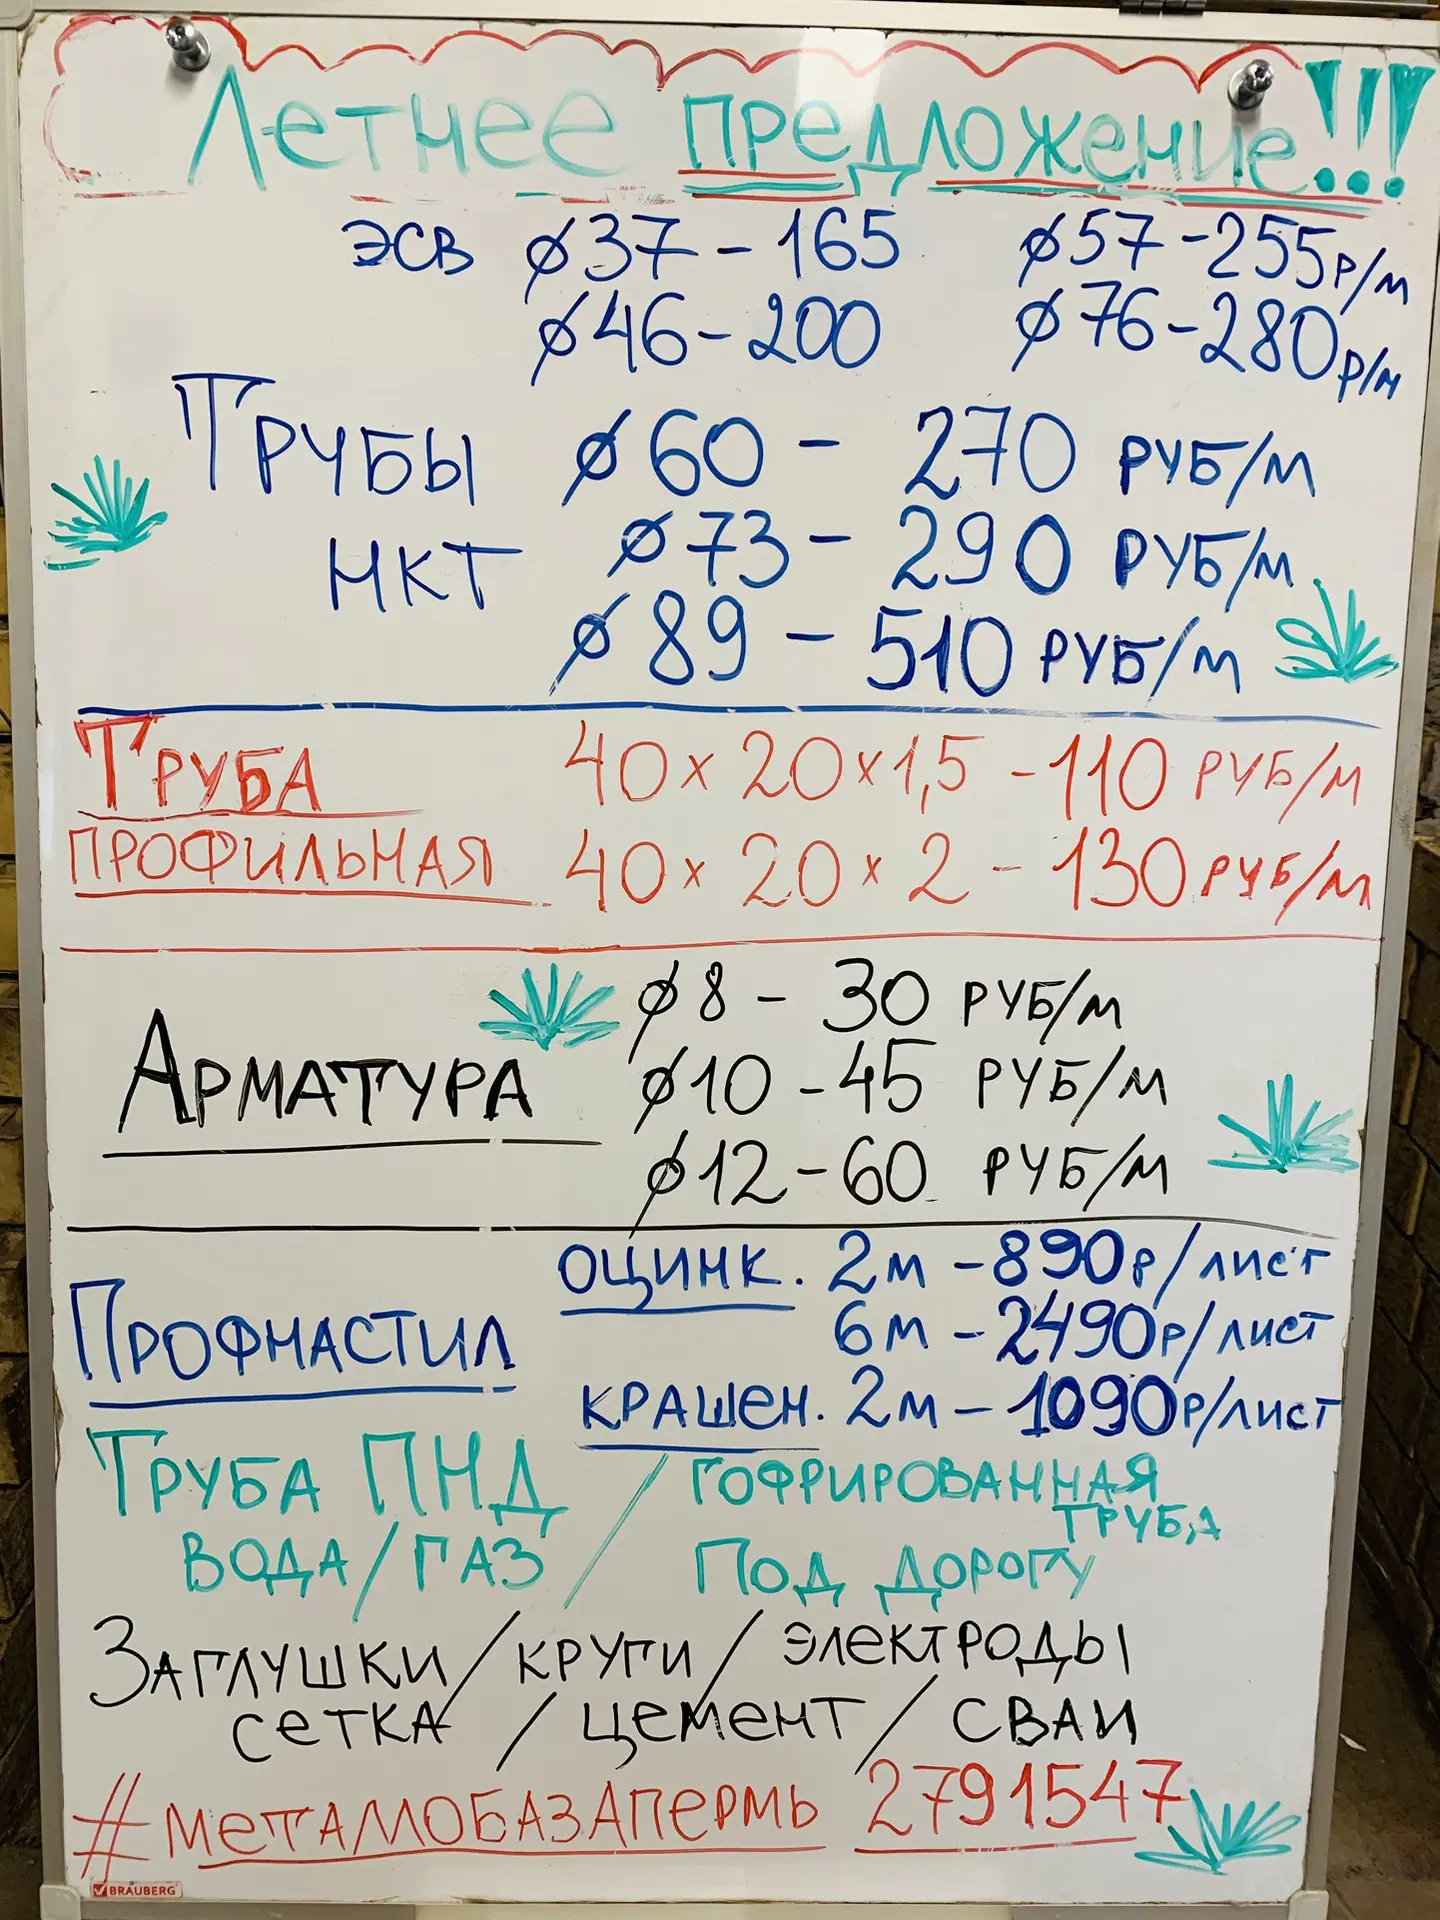 Летнее предложение!!!
ЭСВ ⌀37 - 165 ⌀57 - 255 р/м
⌀46 - 200 ⌀76 - 280 р/м
Трубы ⌀60 - 270 руб/м
НКТ ⌀73 - 290 руб/м
⌀89 - 510 руб/м
Труба 40 x 20 x 1,5 - 110 руб/м
профильная 40 x 20 x 2 - 130 руб/м
⌀8 - 30 руб/м
Арматура ⌀10 - 45 руб/м
⌀12 - 60 руб/м
Профнастил оцинк. 2м - 890р/лист
6м - 2490р/лист
крашен. 2м - 1090р/лист
Труба ПНД / гофрированная труба
вода/газ / Под дорогу
Заглушки / круги / электроды
сетка / цемент / сваи
#металлобазапермь 2791547
BRAUBERG